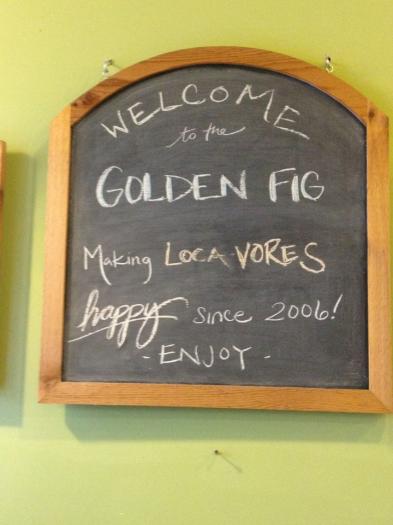 WELCOME
to the
GOLDEN FIG
Making LOCA-VORES
happy since 2006!
- ENJOY -